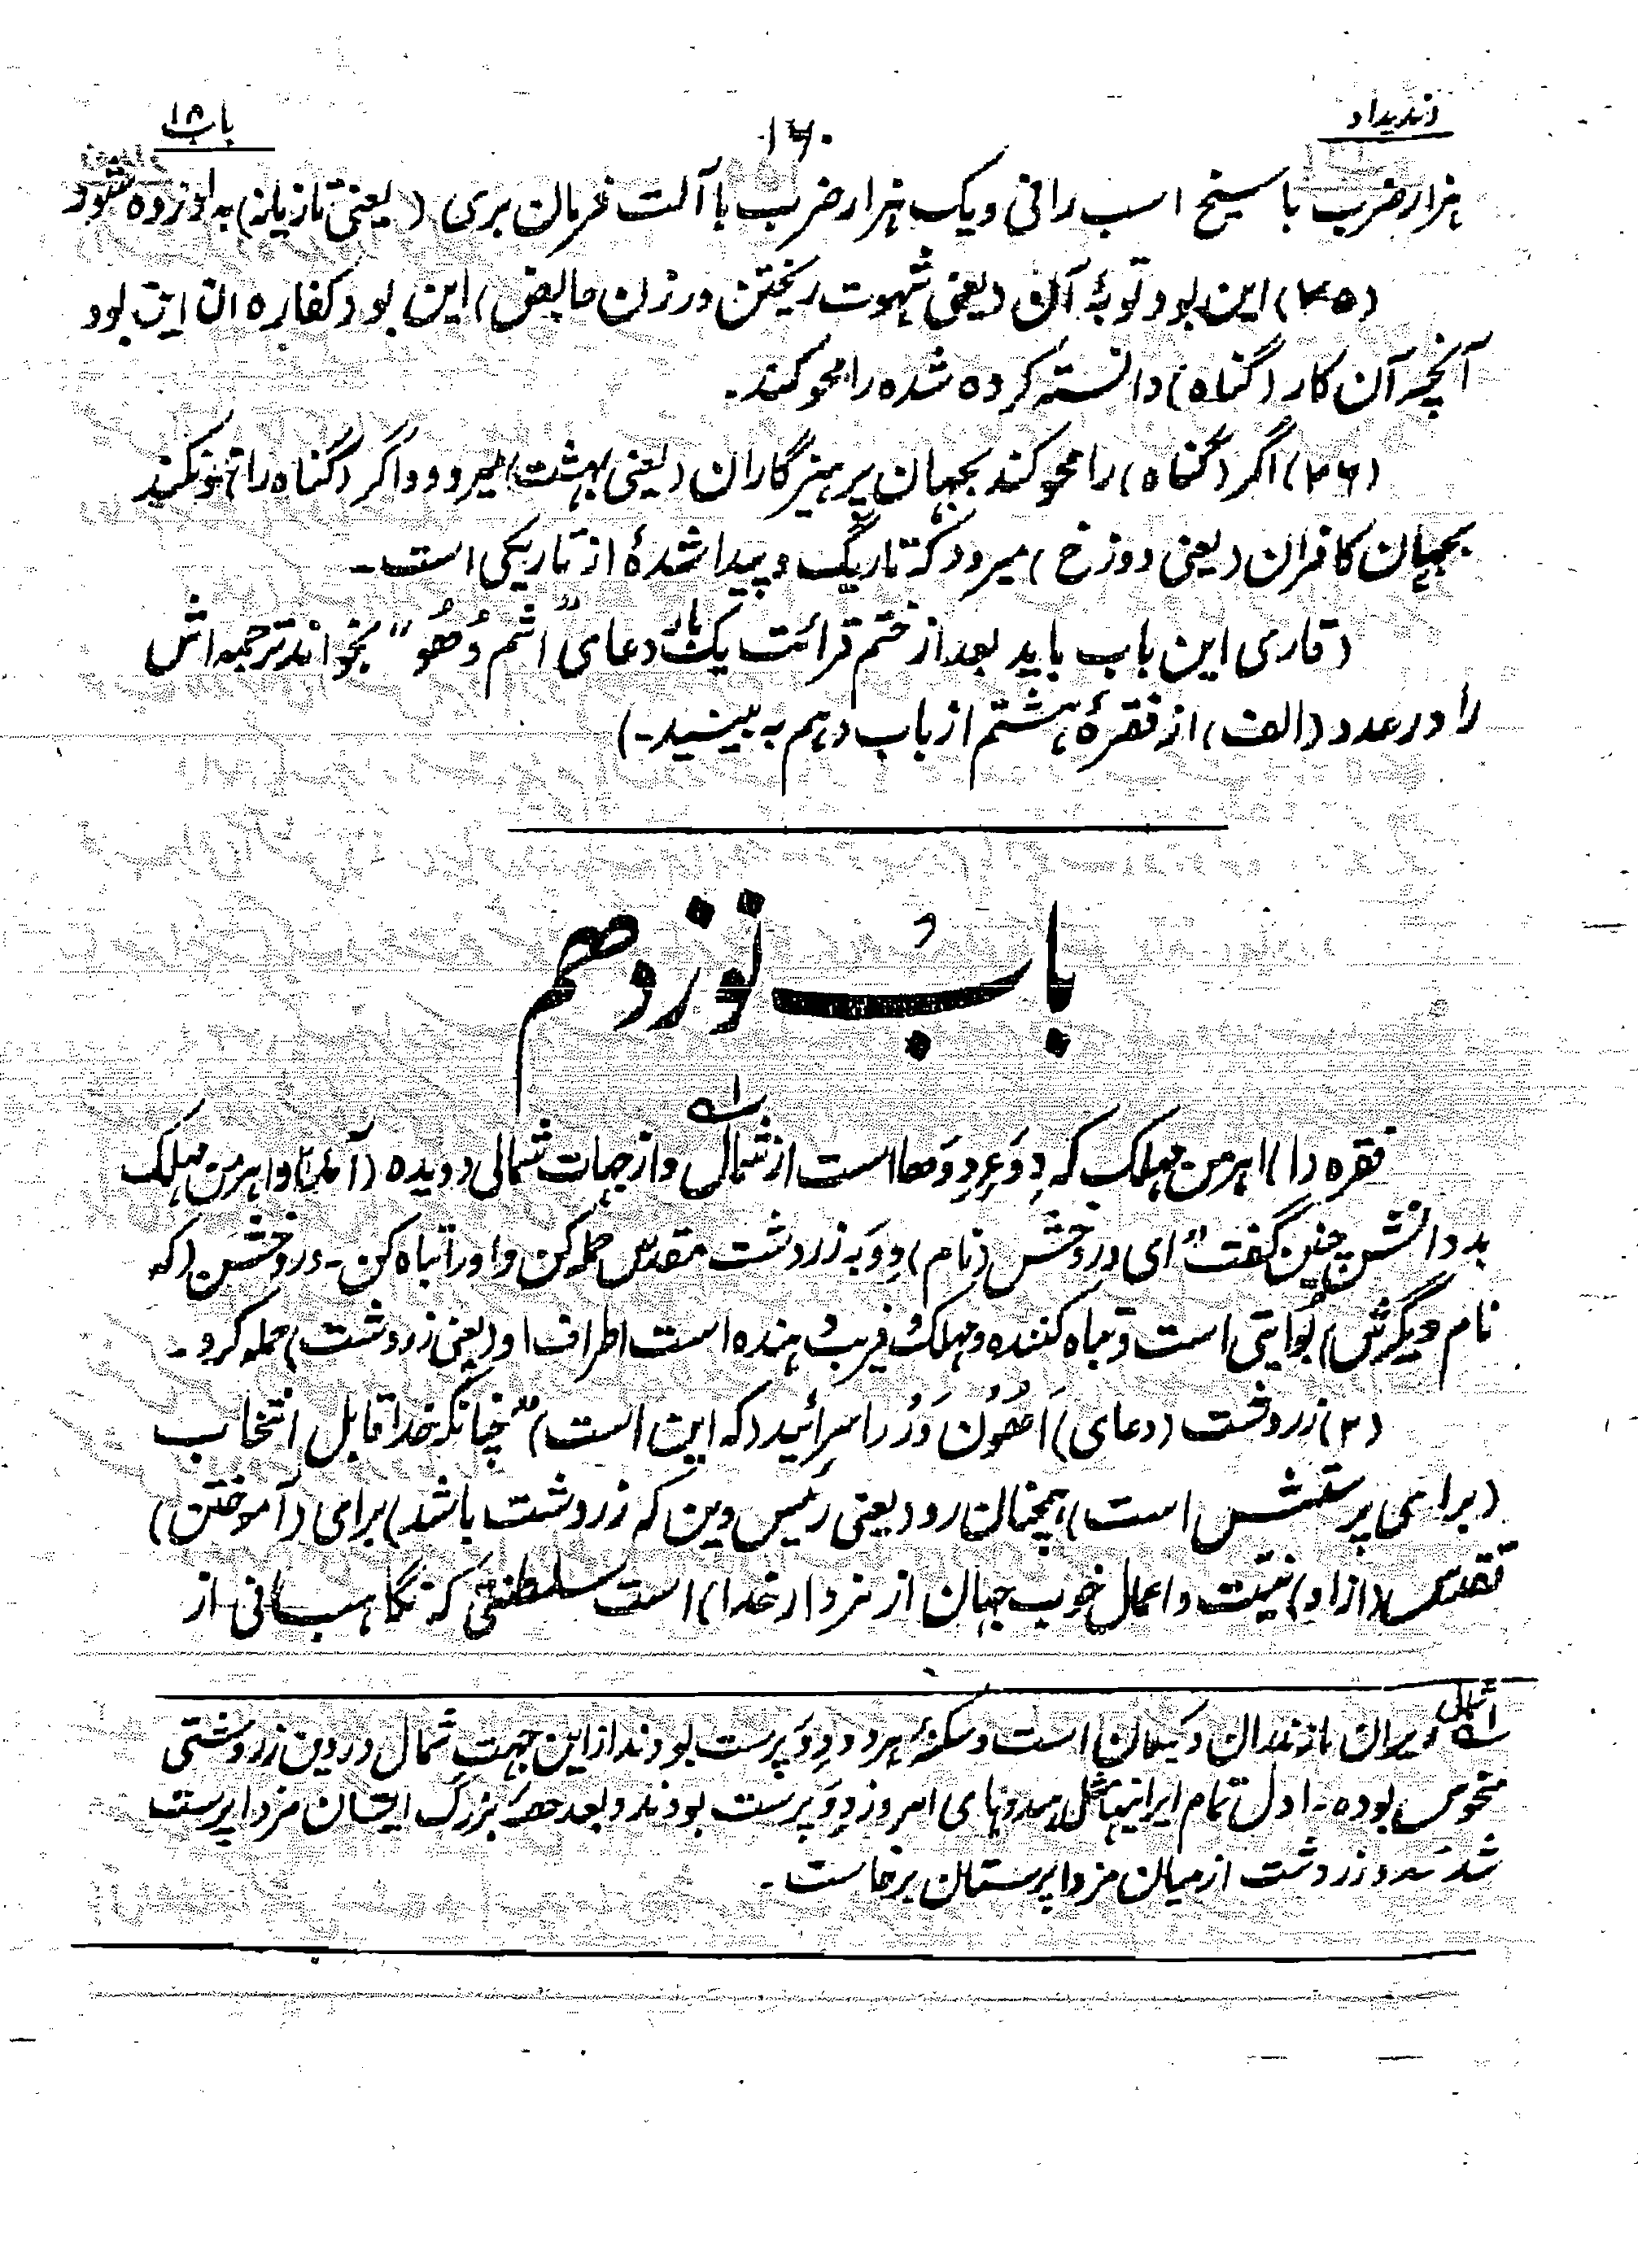 وندیداد
۱۶۰
باب ۱۸
هزار ضرب با سیخ اسب رانی و یک هزار ضرب با آلت فرمان بری (یعنی تازیانه) به او زده شود
(۷۵) این بود توبهٔ آن (یعنی شهوت ریختن در زن حایض) این بود کفاره آن این بود
آنچه آن کار (گناه) دانسته کرده شده را محو کند.
(۷۶) اگر (گناه) را محو کند بجهان پرهیزگاران (یعنی بهشت) میرود و اگر (گناه را) محو نکند
بجهان کافران (یعنی دوزخ) میرود که تاریک و پیدا شدهٔ از تاریکی است ـ
(قاری این باب باید بعد از ختم قرائت یک بار دعای "اَشم وُهُو" بخواند ترجمه‌اش
را در عدد (الف) از فقرهٔ هشتم از باب دهم به بینید ـ)
بابُ نوزدهم
فقره (۱) اهرمن مهلک که دِوَ عِرِ دِوَها است از شمال ۱ و از جهات شمالی دویده (آمد) و اهرمن مهلک
بد دانش چنین گفت "ای دروخش (نام) دِوَ به زردشت مقدس حمله کن و او را تباه کن ـ دروخش (که
نام دیگرش) بوایتی است و تباه کننده و مهلک و فریب دهنده است اطراف او (یعنی زردشت) حمله کرد ـ
(۲) زردشت (دعای) اَهوُن وَرُ را سرائید (که این است) "چنانکه خدا قابل انتخاب
(برای پرستش است) همچنان رد (یعنی رئیس دین که زردشت باشد) برای (آموختن)
تقدس (از او) نیّت و اعمال خوب جهان از مزدا (خدا) است سلطنتی که نگاهبانی از
۱ شمالی ایران مازندران و گیلان است و سکنهٔ هر دو دِوَ پرست بودند از این جهت شمال در دین زردشتی
منحوس بوده ـ اول تمام ایرانیها مثل هندوهای امروز دِوَ پرست بودند و بعد حصهٔ بزرگ ایشان مزدا پرست
شدند و زردشت از میان مزدا پرستان برخاست ـ